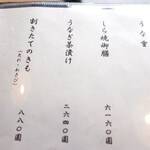 うな重
しら焼御膳
六一六〇圓
うなぎ茶漬け
二六四〇圓
割きたてのきも
(たれ・わさび)
八八〇圓